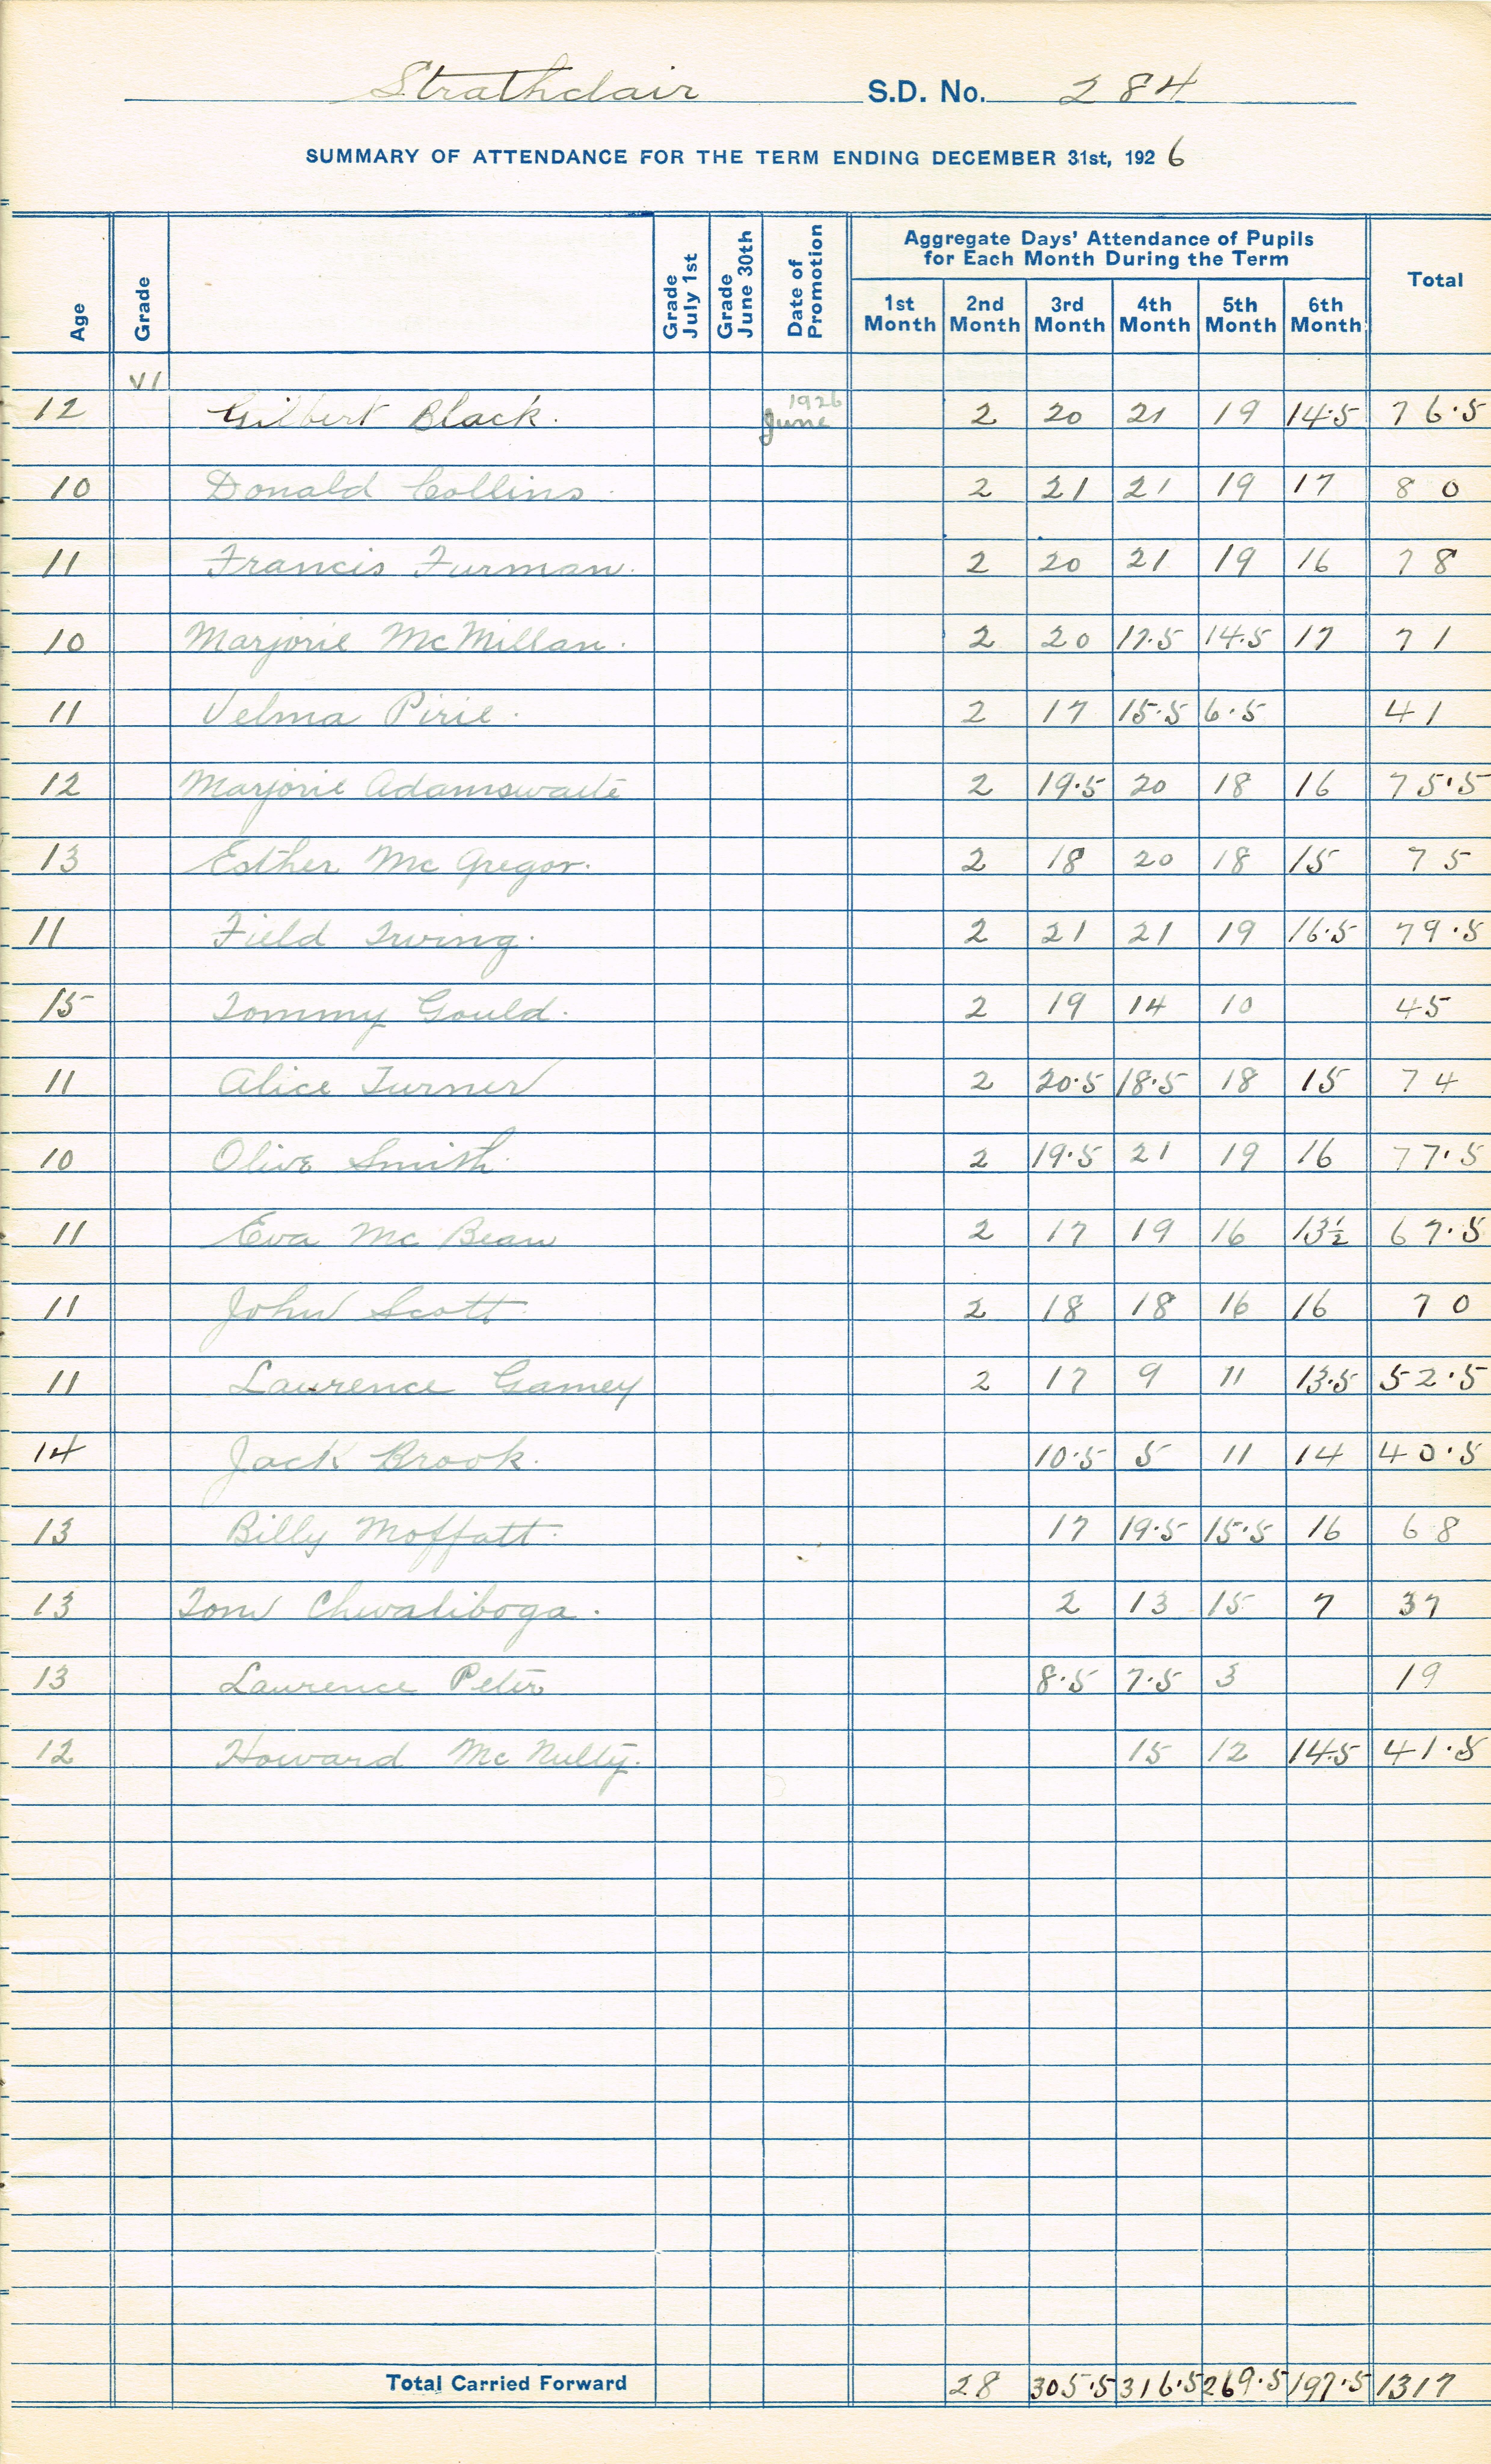 Strathclair S.D. No. 284
SUMMARY OF ATTENDANCE FOR THE TERM ENDING DECEMBER 31st, 1926
Age Grade Grade July 1st Grade June 30th Date of Promotion Aggregate Days' Attendance of Pupils for Each Month During the Term Total
1st Month 2nd Month 3rd Month 4th Month 5th Month 6th Month
VI
12 Gilbert Black. 1926 June 2 20 21 19 14.5 76.5
10 Donald Collins. 2 21 21 19 17 80
11 Francis Furman. 2 20 21 19 16 78
10 Marjorie McMillan. 2 20 17.5 14.5 17 71
11 Velma Pirie. 2 17 15.5 6.5 41
12 Marjorie Adamswaite 2 19.5 20 18 16 75.5
13 Esther McGregor. 2 18 20 18 15 75
11 Field Irving. 2 21 21 19 16.5 79.5
15 Tommy Gould. 2 19 14 10 45
11 Alice Turner 2 20.5 18.5 18 15 74
10 Olive Smith. 2 19.5 21 19 16 77.5
11 Eva McBean 2 17 19 16 13½ 67.5
11 John Scott 2 18 18 16 16 70
11 Laurence Gamey 2 17 9 11 13.5 52.5
14 Jack Brook. 10.5 5 11 14 40.5
13 Billy Moffatt. 17 19.5 15.5 16 68
13 Tom Chwaliboga. 2 13 15 7 37
13 Laurence Peters 8.5 7.5 3 19
12 Howard McNulty. 15 12 14.5 41.5
Total Carried Forward 28 305.5 316.5 269.5 197.5 1317